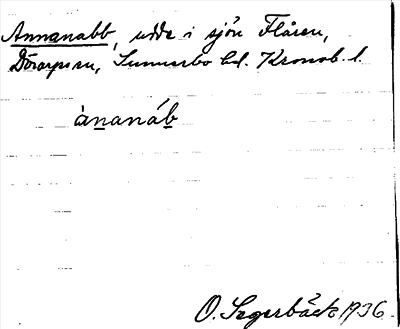 Annanabb, udde i sjön Flåren,
Dörarps sn, Sunnerbo hd. Kronob. l.
ànanáb
O. Segerbäck 1936.